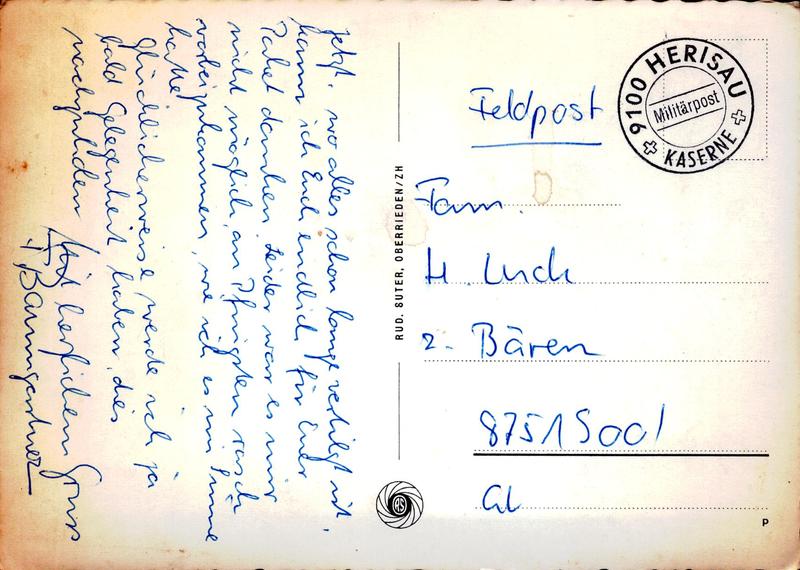 Jetzt, wo alles schon lange vertilgt ist,
kann ich Euch endlich für Euer
Paket danken. Leider war es mir
nicht möglich, an Pfingsten rasch
vorbeizukommen, wie ich es im Sinne
hatte.
Glücklicherweise werde ich ja
bald Gelegenheit haben, dies
nachzuholen
Mit herzlichem Gruss
Baumgartner
RUD. SUTER, OBERRIEDEN/ZH
9100 HERISAU
Militärpost
KASERNE
Feldpost
Fam.
H. Luck
z. Bären
8751 Sool
GL
P